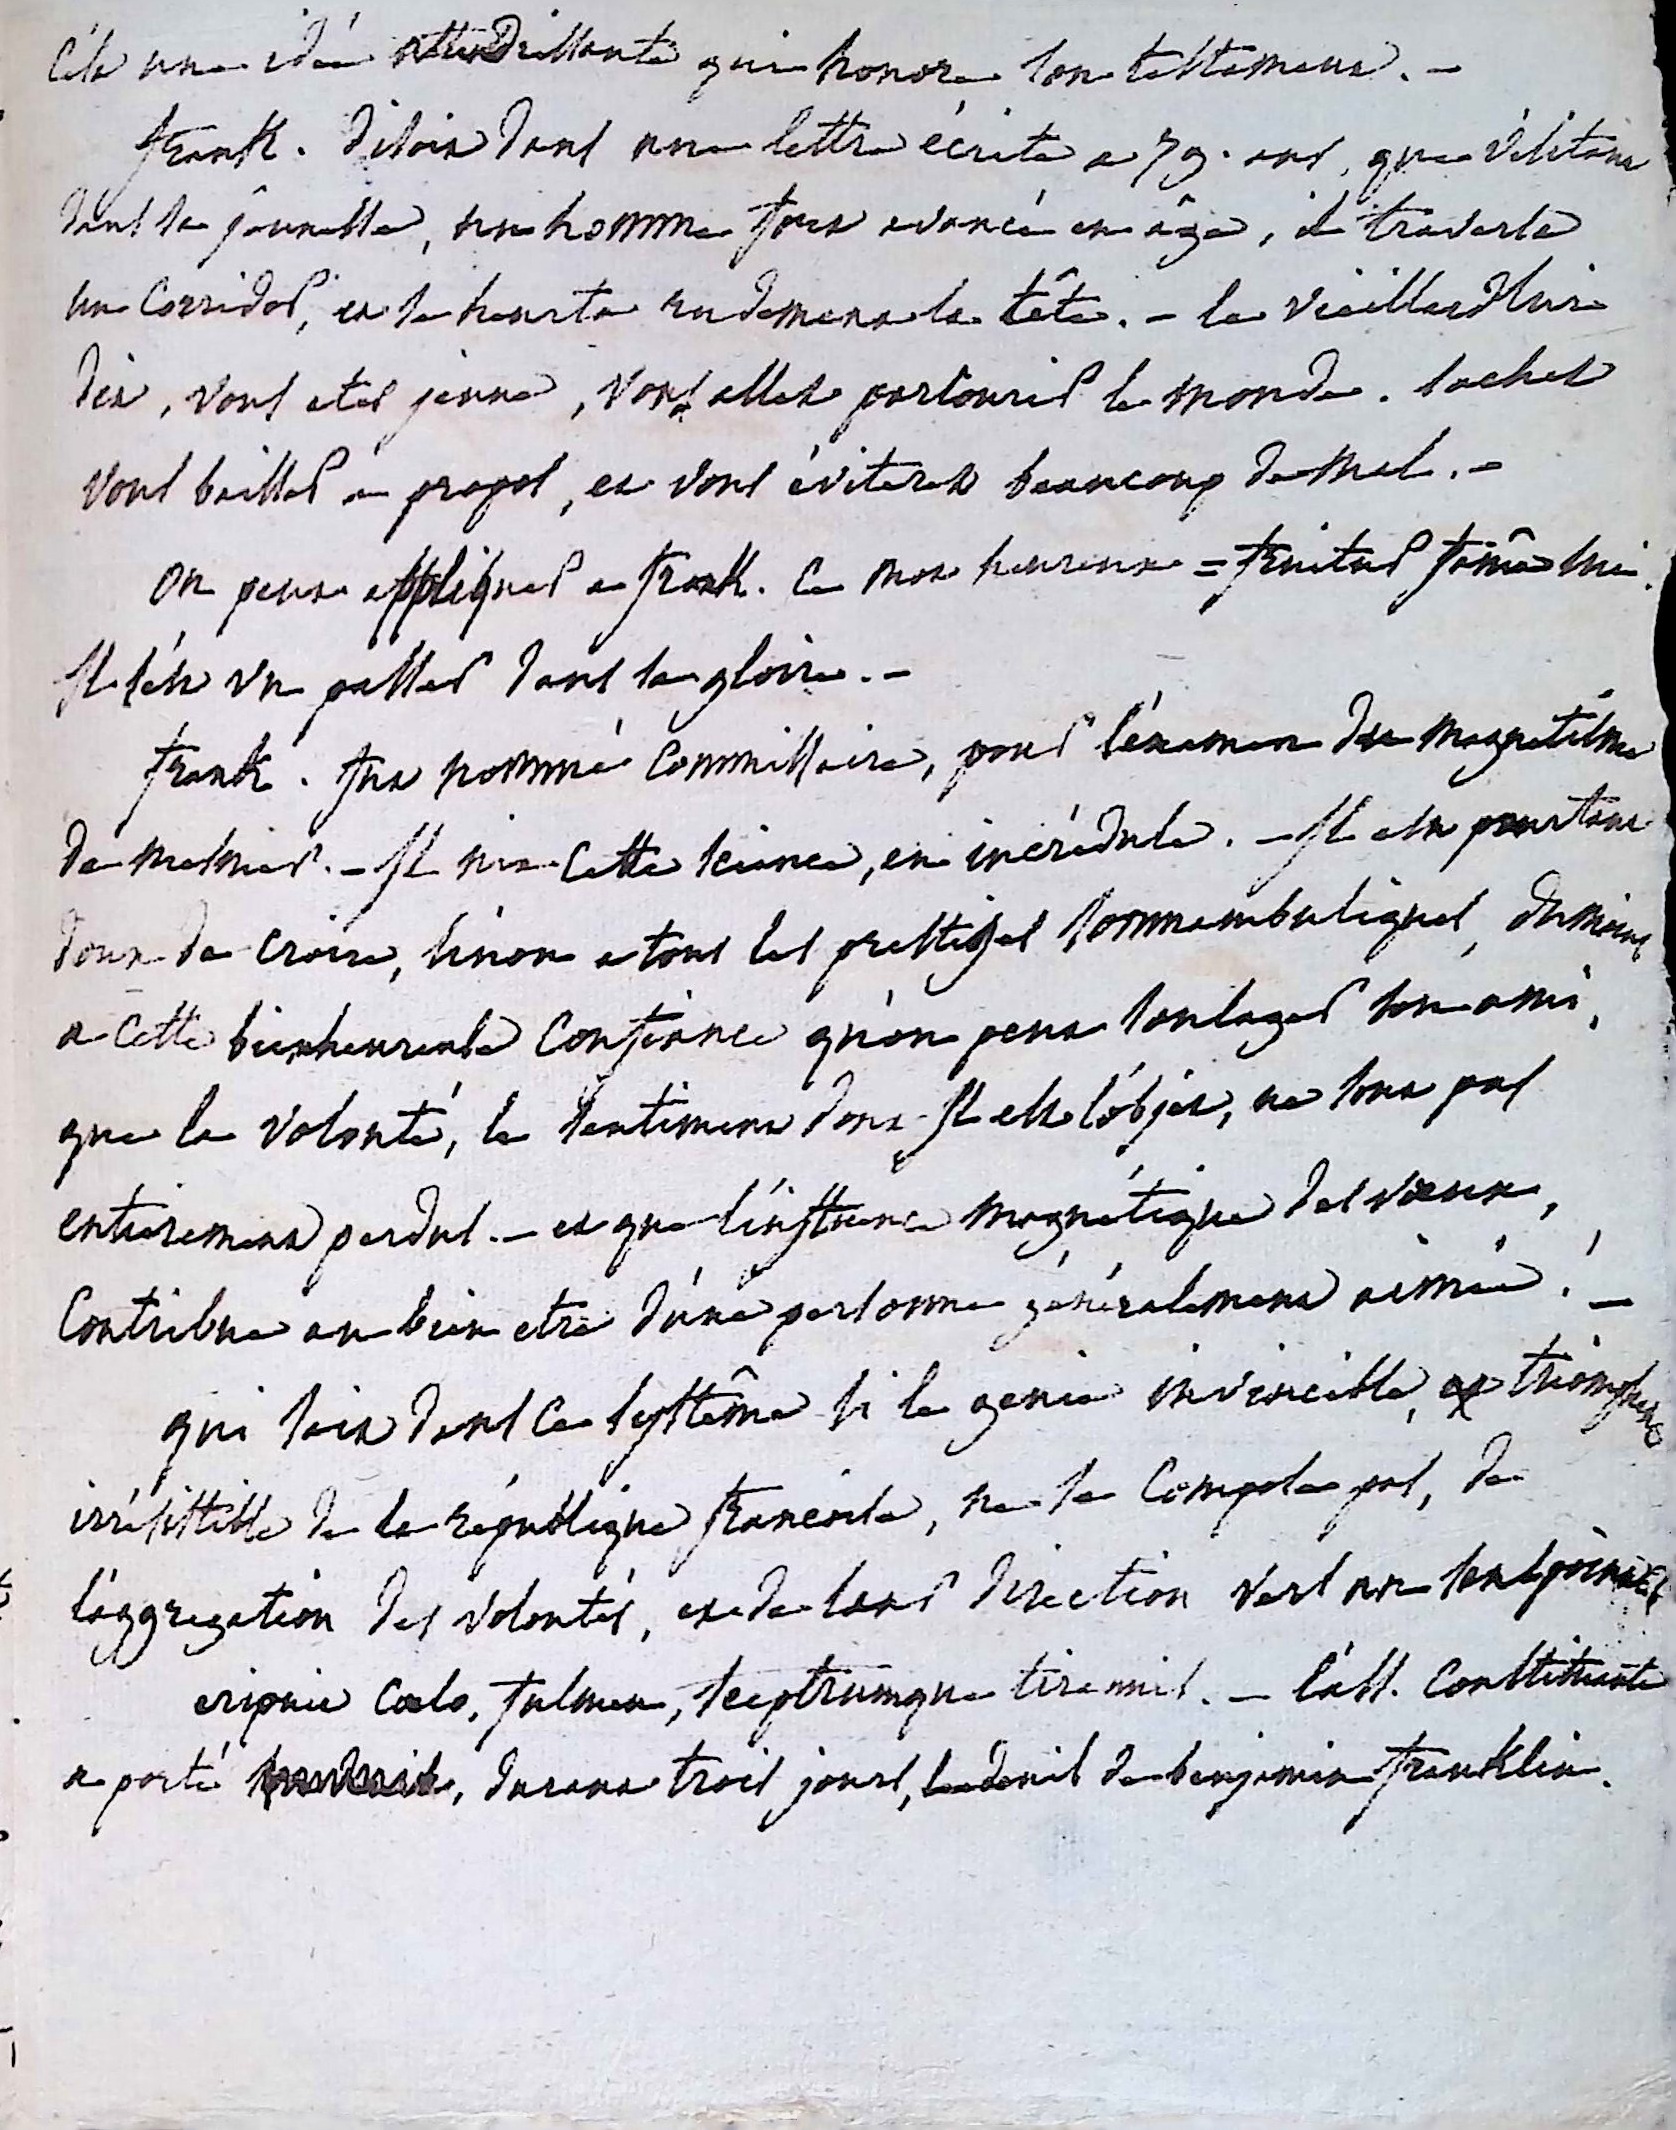 C'est une idée attendrissante qui honore son testament. –
frank. disoit dans une lettre écrite a 79. ans, que visitant
dans sa jeunesse, un homme fort avancé en âge, il traversa
un corridor, et se heurta rudement la tête. – le vieillard lui
dit, vous etes jeune, vous allez parcourir le monde. sachez
vous baisser a propos, et vous éviterez beaucoup de mal. –
on peut appliquer a frank. ce mot heureux = fruitur famâ sui.
Il s'est vu passer dans sa gloire. –
frank. fut nommé commissaire, pour l'éxamen du magnetisme
de mesmer. – Il nia cette science, en incrédule. – Il est pourtant
doux de croire, sinon a tous les prestiges somnambuliques, du moins
a cette bienheureuse confiance qu'on peut soulager son ami,
que la volonté, le sentiment dont Il est l'objet, ne sont pas
entierement perdus. – et que l'influence magnétique des vœux,
contribue au bien etre d'une personne généralement aimée! –
qui sait dans ce systême si le genie invincible, et triomphant
irrésistible de la république francaise, ne se compose pas, de
l'aggregation des volontés, et de leur direction vers un seul point
eripuit cœlo, fulmen, sceptrumque tirannis. – l'ass. constituante
a porté, durant trois jours, le deuil de benjamin franklin.